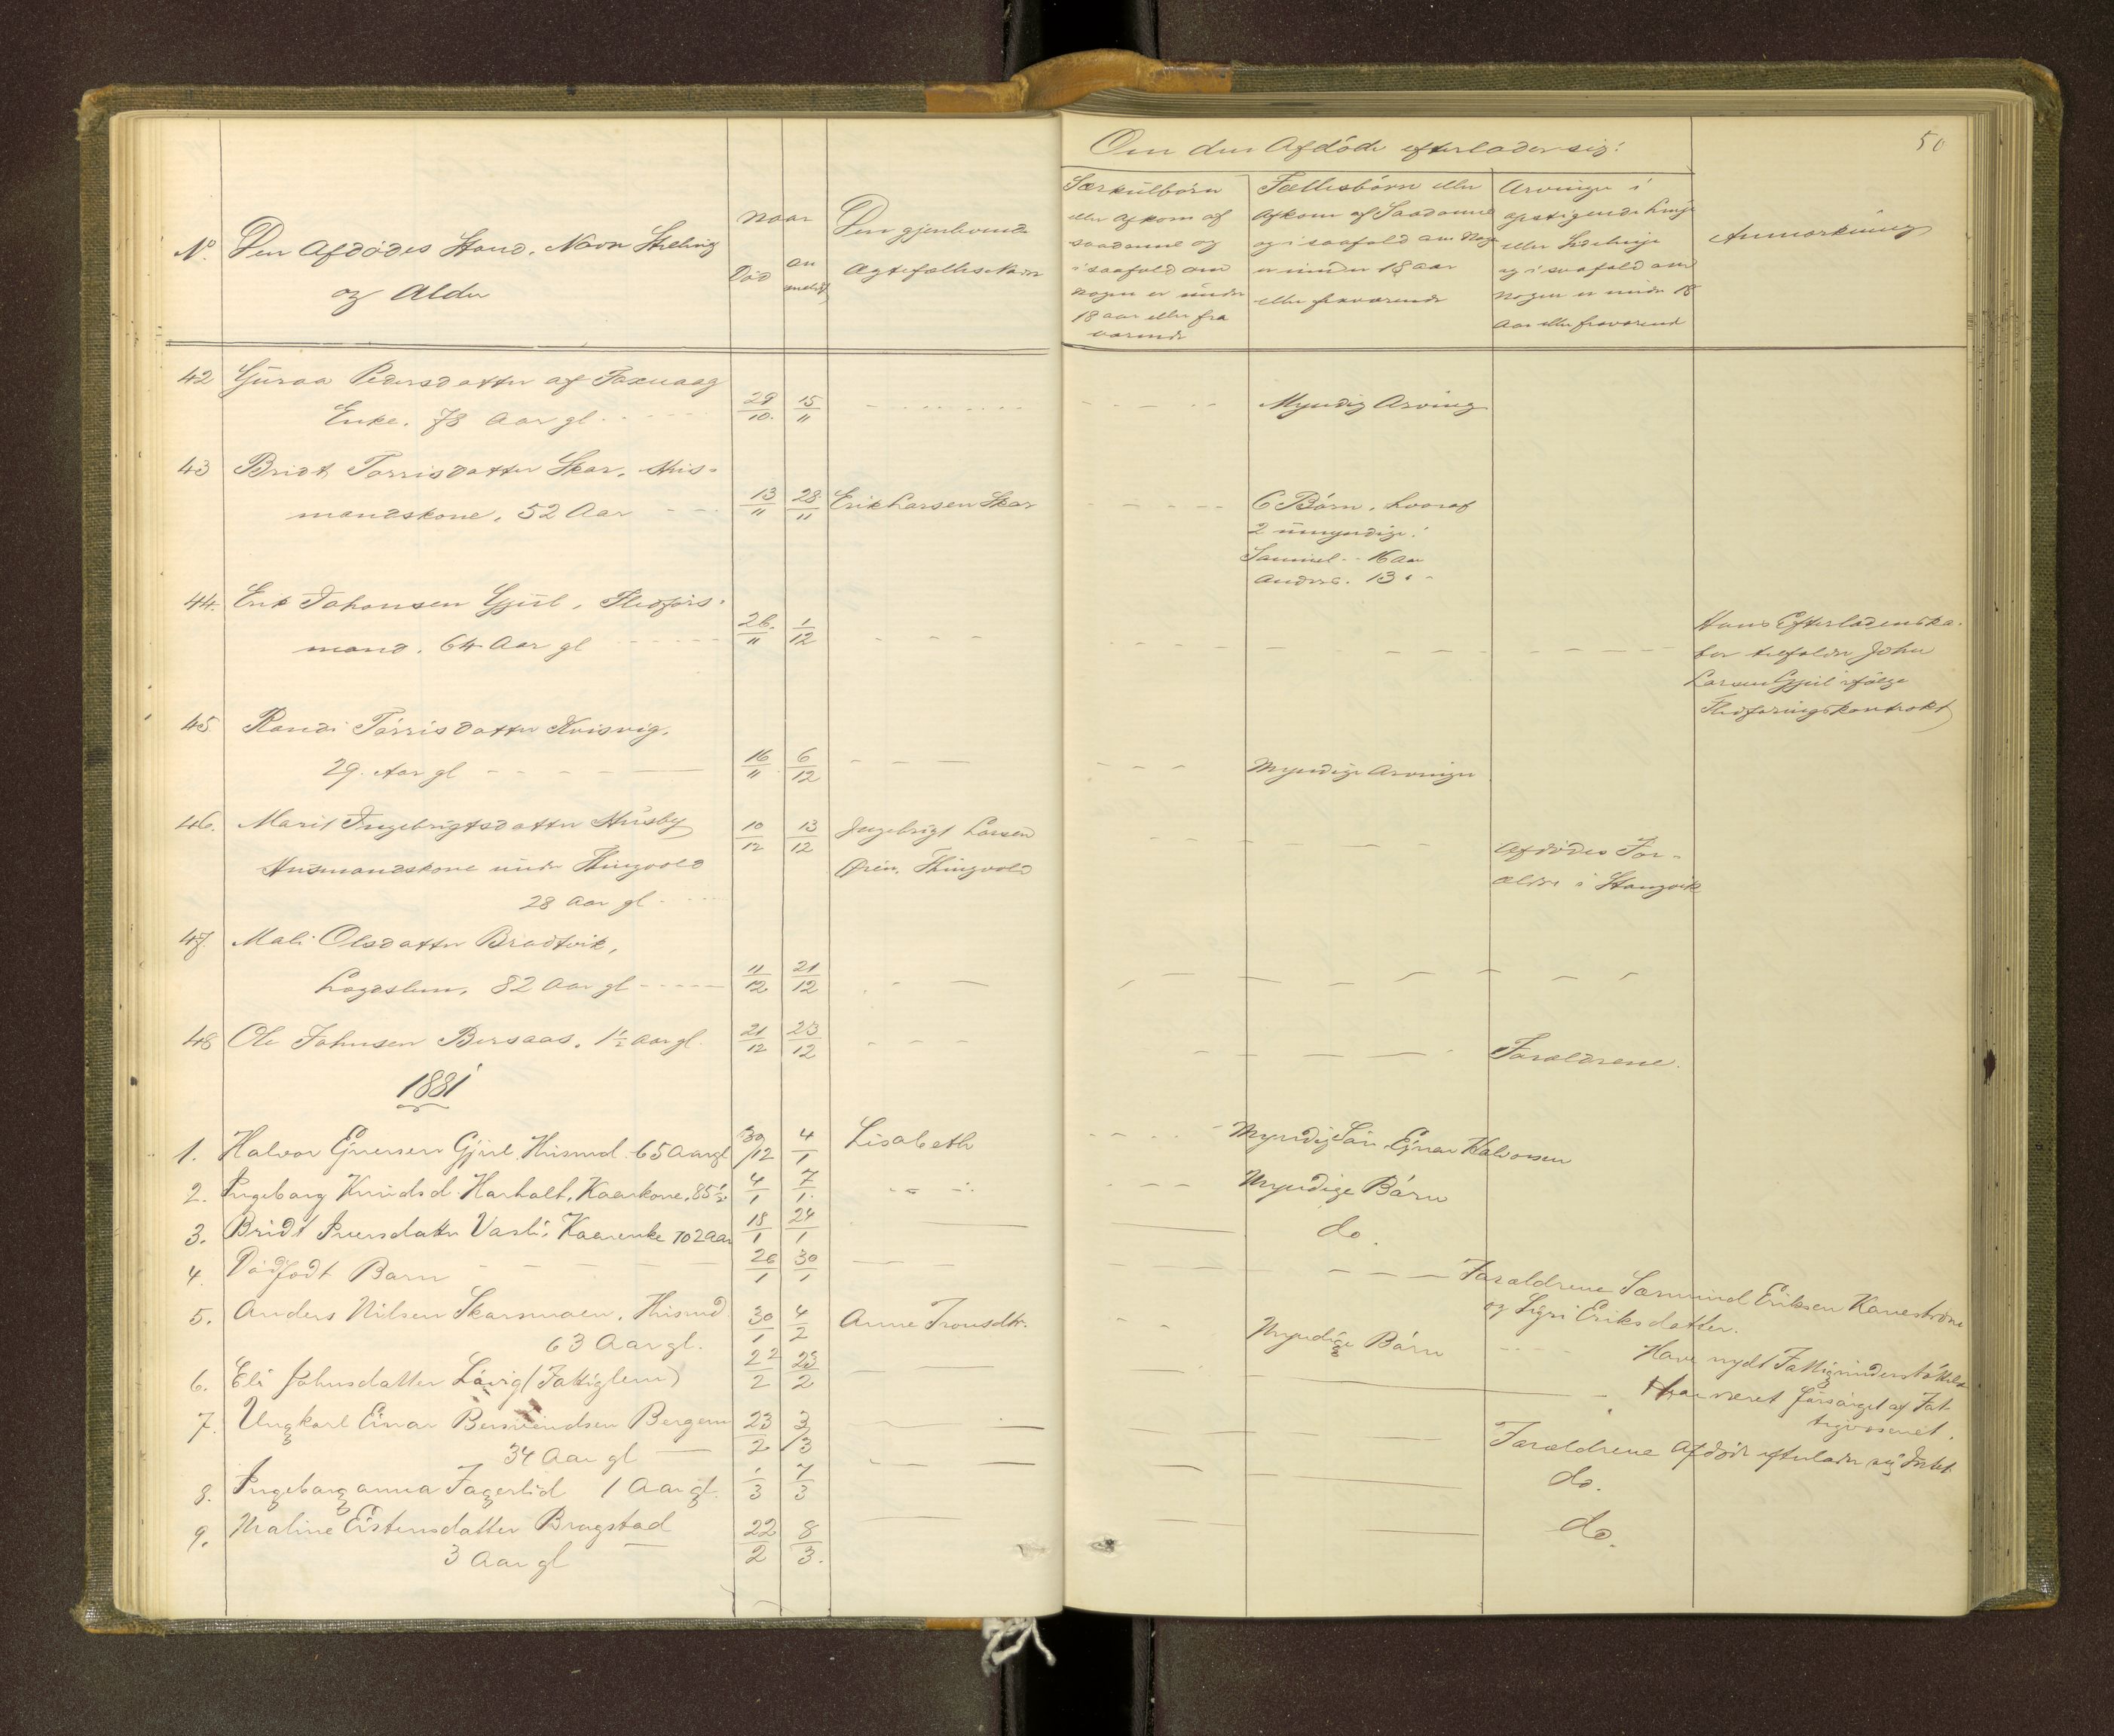 Om den Afdöde efterlader sig:
50
No.
Den Afdödes Stand, Navn Stilling
og Alder
Naar
Död
an
meldt
Den gjenlevende
Ægtefælles Navn
Særkulbörn
eller Afkom af
saadanne og
i saafald om
nogen er under
18 aar eller fra
værende
Fællesbörn eller
Afkom af Saadanne
og i saafald om Nogen
er under 18 aar
eller fraværende
Arvinger i
opstigende Linje
eller Sidelinje
og i saafald om
nogen er under 18
Aar eller fraværend
Anmærkning
42 Guraa Pedersdatter af Taxvaag
Enke. 78 Aar gl. 29/10. 15/11 Myndig Arving
43 Bridt Torrisdatter Skar, Hus-
mandskone, 52 Aar 13/11 28/11 Erik Larsen Skar 6 Börn, hvoraf
2 umyndige:
Samuel - 16 Aar
Anders. 13 "
44. Erik Johansen Gjul, Fledförs-
mand. 64 Aar gl 26/11 1/12
Hans Efterladenska-
ber tilfalder John
Larsen Gjul ifölge
Fledföringskontrakt
45 Randi Törrisdatter Kvisvig,
29. Aar gl 16/11 6/12 Myndige Arvinger
46. Marit Ingebrigtsdatter Husby
Husmandskone under Thingvold
28 Aar gl 10/12 13/12 Ingebrigt Larsen
Øren, Thingvold
Afdödes For-
ældre i Stangvik
47. Mali Olsdatter Bradtvik,
Lægdslem, 82 Aar gl 11/12 21/12
48 Ole Johnsen Bersaas, 1½ Aar gl. 21/12 23/12 Forældrene.
1881
1. Halvor Ejnersen Gjul Husmd. 65 Aar gl 30/12 4/1 Lisabeth Myndige Sön Ejnar Halvorsen
2. Ingeborg Knudsd. Harholt, Kaarkone, 85½ 4/1 7/1. Myndige Börn
3. Bridt Iversdatter Vasli, Kaarenke 102 Aar 18/1 24/1 do.
4. Dödfödt Barn 26/1 30/1 Forældrene Sæmund Eriksen Kaneström
og Sigri Eriksdatter.
5. Anders Nilsen Skarsmoen, Husmd.
63 Aar gl. 30/1 4/2 Anne Tronsdtr. Myndige Börn Have nydt Fattigunderstöttelse
6. Eli Johnsdatter (Fattiglem) 22/2 23/2 Har været forsörget af Fat-
tigvæsenet.
7. Ungkarl Einar Bergem
34 Aar gl 23/2 3/3 Forældrene Afdöde efterlader sig Intet
8. Ingeborganna Fagerlid 1 Aar gl. 1/3 7/3 do.
9. Maline Eistensdatter Brugstad
3 Aar gl 22/2 8/3. do.